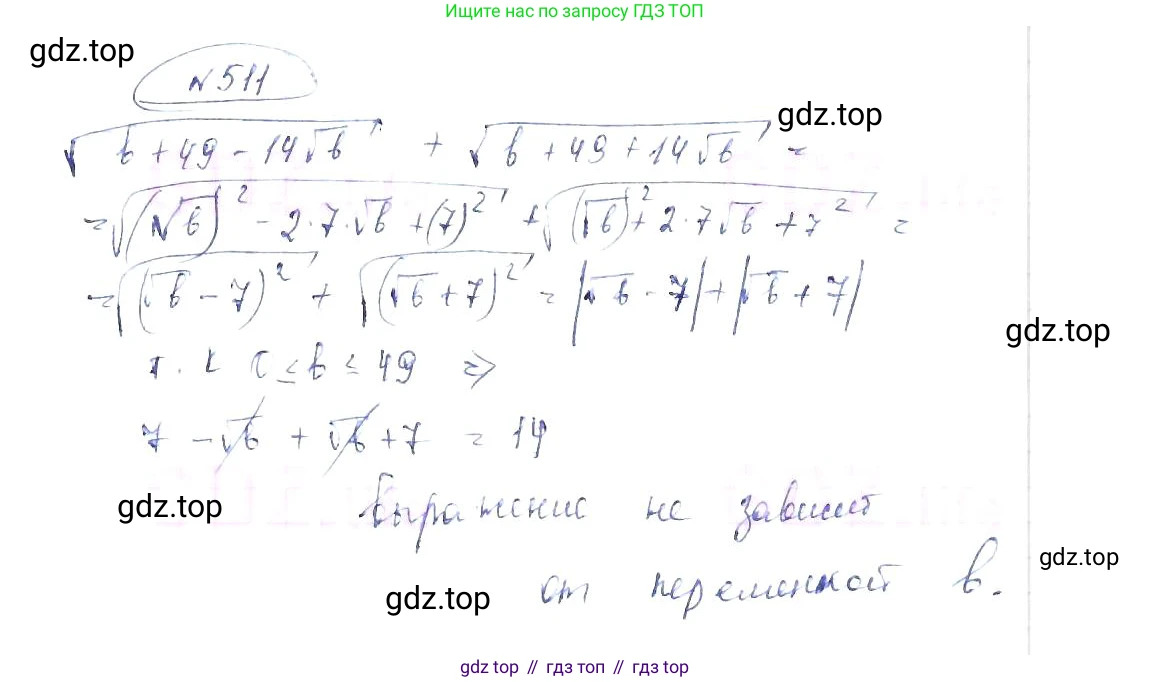 Ищите нас по запросу ГДЗ ТОП
gdz.top
№511
gdz.top
√(b + 49 - 14√b) + √(b + 49 + 14√b) =
= √((√b)² - 2·7·√b + (7)²) + √((√b)² + 2·7√b + 7²) =
= √((√b - 7)²) + √((√b + 7)²) = |√b - 7| + |√b + 7|
gdz.top
т.к 0 ≤ b ≤ 49 ⇒
7 - √b + √b + 7 = 14
gdz.top
Выражение не зависит
gdz.top
от переменной b.
gdz.top
gdz top // гдз топ // gdz top